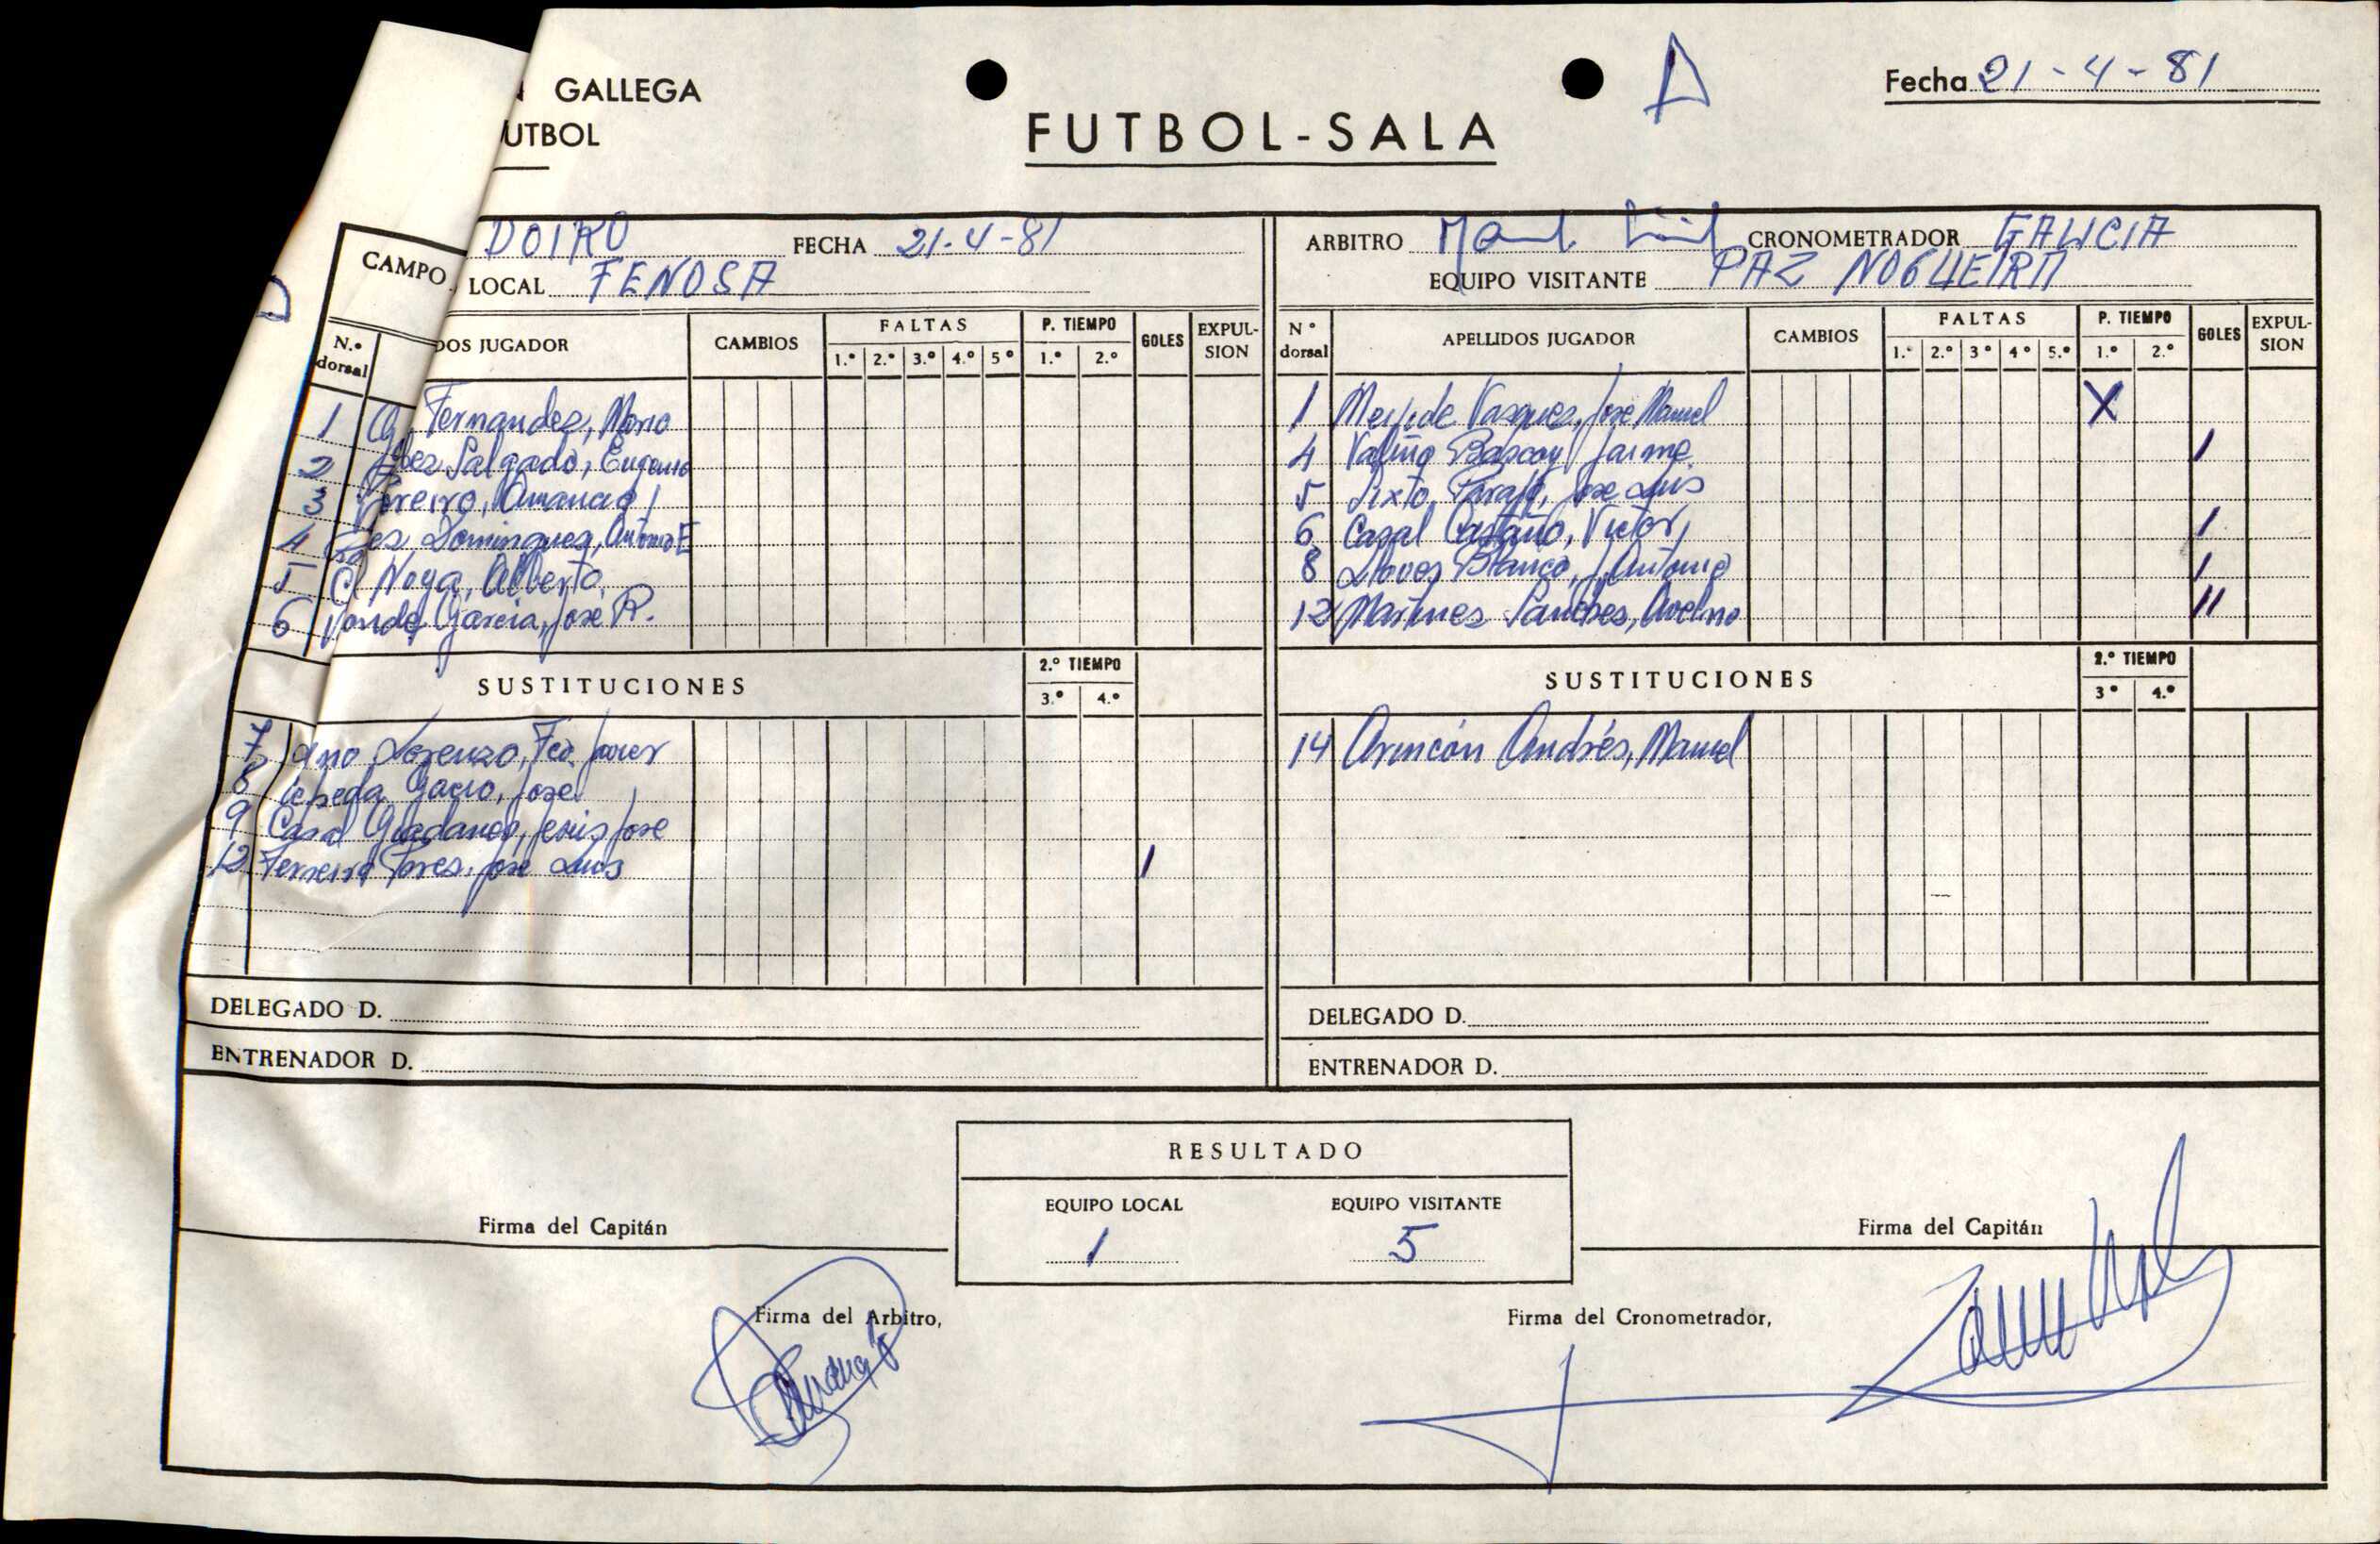 GALLEGA
UTBOL
FUTBOL-SALA
Fecha 21-4-81
CAMPO DOIRO FECHA 21-4-81
LOCAL FENOSA
ARBITRO CRONOMETRADOR GALICIA
EQUIPO VISITANTE PAZ NOGUEIRA
N.º dorsal DOS JUGADOR CAMBIOS FALTAS 1.º 2.º 3.º 4.º 5º P. TIEMPO 1.º 2.º GOLES EXPUL-SION
1 Fernandez, Mario
2 Salgado, Eugenio
3 reiro, Amancio
4 ez Dominguez, Antonio E
5 Noya, Alberto
6 Garcia, Jose R.
SUSTITUCIONES 2.º TIEMPO 3.º 4.º
7 Lorenzo, Fco. Javier
8 Cepeda Gacio, Jose
9 Casal Jesus Jose
12 Ferreiro Jose Luis /
DELEGADO D.
ENTRENADOR D.
Nº dorsal APELLIDOS JUGADOR CAMBIOS FALTAS 1.º 2.º 3º 4º 5.º P. TIEMPO 1.º 2.º GOLES EXPUL-SION
1 Mejide Vasquez, Jose Manuel X
4 Valiño Bascoy Jaime /
5 Sixto Jose Luis
6 Casal Castaño, Victor /
8 Blanco, J. Antonio /
12 Martinez Sanchez, Avelino //
SUSTITUCIONES 2.º TIEMPO 3º 4.º
14 Andrés, Manuel
DELEGADO D.
ENTRENADOR D.
RESULTADO
EQUIPO LOCAL EQUIPO VISITANTE
1 5
Firma del Capitán
Firma del Capitán
Firma del Arbitro,
Firma del Cronometrador,